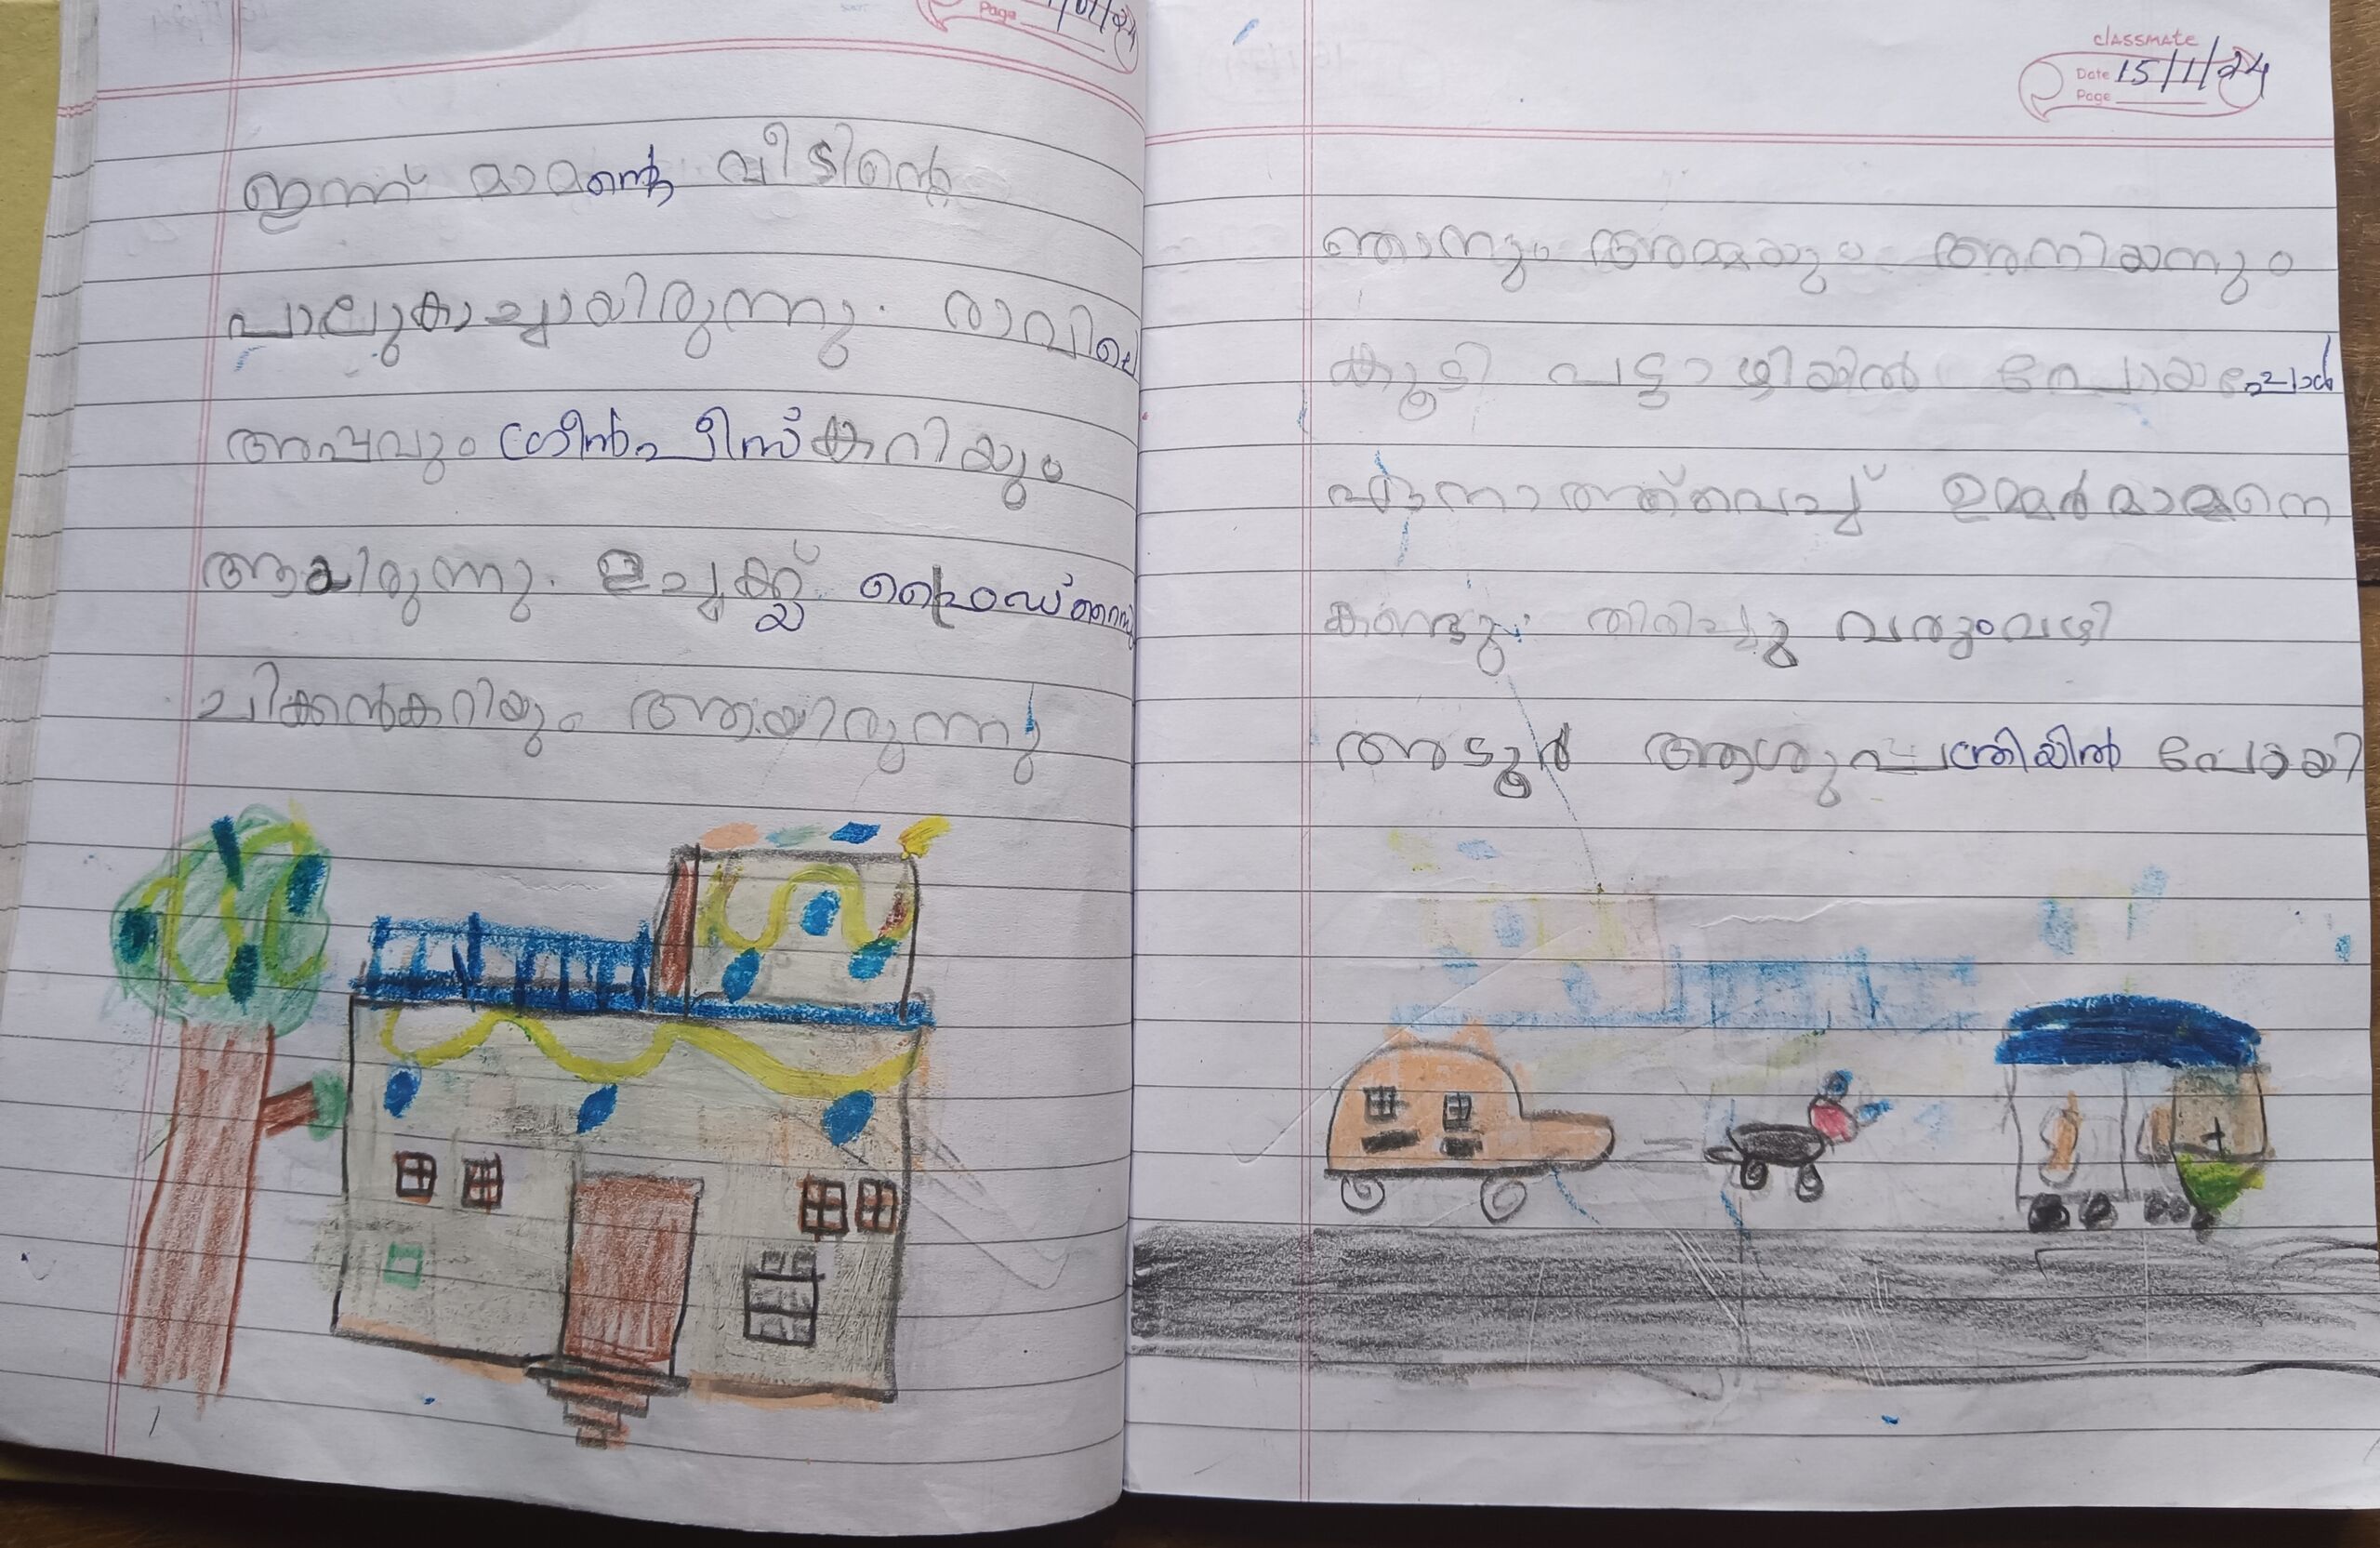 Page /01/24
ഇന്ന് മാമന്റെ വീടിന്റെ
പാലുകാച്ചായിരുന്നു. രാവിലെ
അപ്പവും ഗ്രീൻപീസ് കറിയും
ആയിരുന്നു. ഉച്ചക്ക്
ചിക്കൻകറിയും ആയിരുന്നു
classmate
Date 15/1/24
Page
ഞാനും അമ്മയും അനിയനും
കൂടി പട്ടാഴിയിൽ പോയപ്പോൾ
ഏനാത്ത് വെച്ച് ഉമ്മർമാമനെ
കണ്ടു. തിരിച്ചു വരുംവഴി
അടൂർ ആശുപത്രിയിൽ പോയി